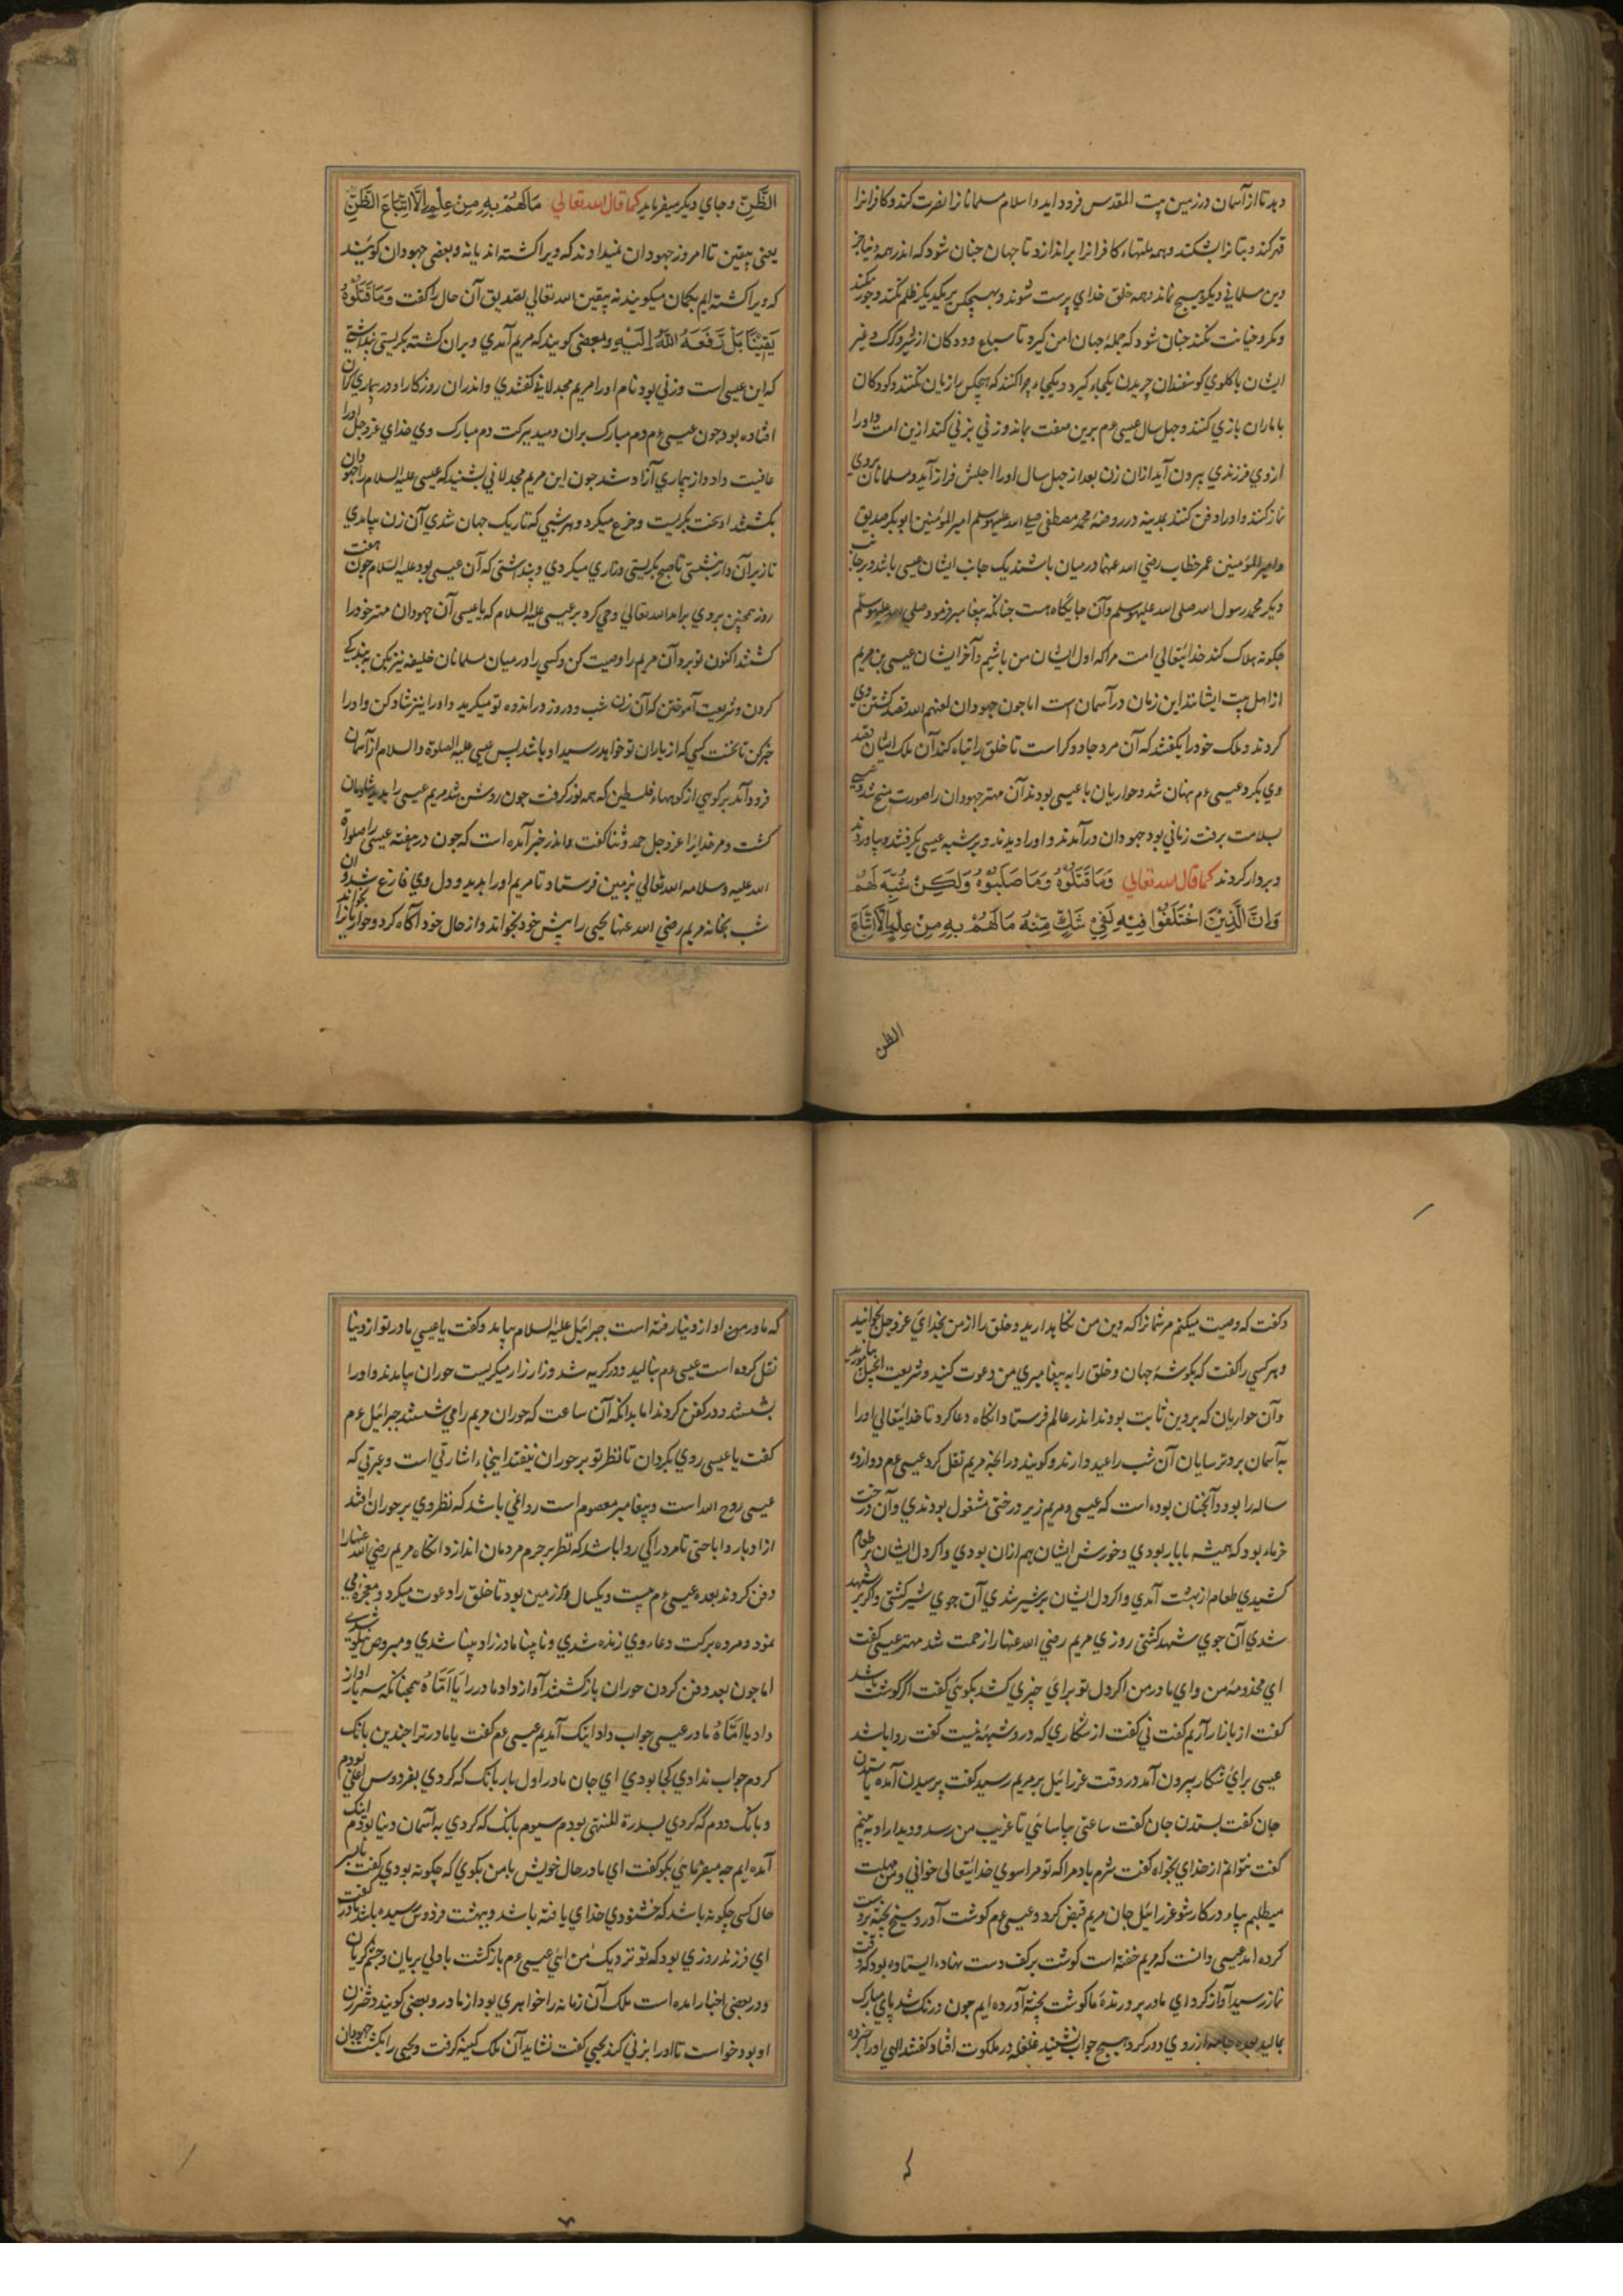 دهد تا از آسمان در زمین بیت المقدس فرود آید و اسلام مسلمانانرا نصرت کند و کافرانرا
قهر کند و بتانرا بشکند و همه ملتهاء کافرانرا براندازد تا جهان چنان شود که اندر همه دنیا جز
دین مسلمانی دیگر هیچ نماند و همه خلق خدای پرست شوند و هیچکس بر یکدیگر ظلم نکند و جور نکند
و مکر و خیانت نکند چنان شود که جملهٔ جهان امن گیرد تا سباع و ددکان از شیر و گرگ و غیر
ایشان با گلوی گوسفندان چریدن یکجاء گیرد و یکجاء چرا کنند که هیچکس را زیان نکنند و کودکان
با ماران بازی کنند و چهل سال عیسی ءم برین صفت بماند و زنی بزنی کند ازین امت و او را
از وی فرزندی بیرون آید ازان زن بعد از چهل سال او را اجلش فراز آید و مسلمانان بر وی
نماز کنند و او را دفن کنند بمدینه در روضهٔ محمد مصطفی صلی الله علیه وسلم امیر المؤمنین ابوبکر صدیق
و امیر المؤمنین عمر خطاب رضی الله عنهما در میان باشند یک جانب ایشان عیسی باشد و بر جانب
دیگر محمد رسول الله صلی الله علیه وسلم و آن جایگاه هست چنانکه پیغامبر فرمود صلی الله علیه وسلم
چگونه هلاک کند خدایتعالی امت مرا که اول ایشان من باشیم و آخر ایشان عیسی بن مریم
از اهل بیت ایشانند این زمان در آسمان است اما چون جهودان لعنهم الله قصد کشتن وی
کردند و ملک خود را بگفتند که آن مرد جادوگر است تا خلق را تباه کند آن ملک ایشان قصد
وی بکرد عیسی ءم پنهان شد و حواریان با عیسی بودند آن مهتر جهودان را صورت مسخ شد و عیسی
بسلامت برفت زمانی بود جهودان درآمدند و او را دیدند و بر شبه عیسی بگرفتند و بیاوردند
و بر دار کردند کما قال الله تعالی وَمَا قَتَلُوْهُ وَمَا صَلَبُوْهُ وَلٰكِنْ شُبِّهَ لَهُمْ
وَاِنَّ الَّذِيْنَ اخْتَلَفُوْا فِيْهِ لَفِيْ شَكٍّ مِّنْهُ مَا لَهُمْ بِهِ مِنْ عِلْمٍ اِلَّا اتِّبَاعَ
الظن
الظَّنِّ و جای دیگر میفرماید کما قال الله تعالی مَا لَهُمْ بِهِ مِنْ عِلْمٍ اِلَّا اتِّبَاعَ الظَّنِّ
یعنی بیقین تا امروز جهودان نمیدانند که ویرا کشته اند یا نه و بعضی جهودان گویند
که ویرا کشته ایم بگمان میگویند نه بیقین الله تعالی بتصدیق آن حال را گفت وَمَا قَتَلُوْهُ
يَقِيْنًا بَلْ رَّفَعَهُ اللّٰهُ اِلَيْهِ و بعضی گویند که مریم آمدی و بران کشته بگریستی پنداشتی
که این عیسی است و زنی بود نام او را مریم مجدلانی گفتندی و اندران روزگار او در بیماری گران
افتاده بود چون عیسی ءم دم مبارک بران دمید ببرکت دم مبارک وی خدای عزوجل او را
عافیت داد و از بیماری آزاد شد چون این مریم مجدلانی بشنید که عیسی علیه السلام را جهودان
بکشتند او سخت بگریست و جزع میکرد و هر شبی که تاریک جهان شدی آن زن بیامدی
تا زیر آن دار بنشستی تا صبح بگریستی و زاری میکردی و پنداشتی که آن عیسی بود علیه السلام چون هفت
روز همچنین بروی برآمد الله تعالی وحی کرد بر عیسی علیه السلام که یا عیسی آن جهودان مهتر خود را
کشتند اکنون تو برو آن مریم را وصیت کن و کسی را در میان مسلمانان خلیفه نیز بکن به بندگی
کردن و شریعت آموختن که آن زن شب و روز در اندوه تو میگرید و او را نیز شاد کن و او را
خبر کن تا نخست کسی که از یاران تو خواهد رسید او باشد پس عیسی علیه الصلوة والسلام از آسمان
فرود آمد بر کوهی از کوههاء فلسطین که همه نور گرفت چون روشن شد مریم عیسی را بدید شادمان
گشت و مر خدایرا عزوجل حمد و ثنا گفت و اندر خبر آمده است که چون در هفته عیسی را صلواة
الله علیه و سلامه الله تعالی بزمین فرستاد تا مریم او را بدید و دل وی فارغ شد و آن
شب بخانه مریم رضی الله عنها یحیی را پیش خود بخواند و از حال خود آگاه کرد و حواریانرا بخواند
و گفت که وصیت میکنم مر شمانرا که دین من نگاهدارید و خلق را از من بخدای عزوجل بخوانید
و هر کسی را گفت که بگوشهٔ جهان و خلق را به پیغامبری من دعوت کنید و شریعت انجیل بیاموزید
و آن حواریان که بر دین ثابت بودند اندر عالم فرستاد و انگاه دعا کرد تا خدایتعالی او را
به آسمان برد و ترسایان آن شب را عید دارند و گویند در انچه مریم نقل کرد عیسی ءم دوازده
ساله را بود و آنچنان بوده است که عیسی و مریم زیر درختی مشغول بودندی و آن درخت
خرماء بود که همیشه با بار بودی و خورش ایشان هم ازان بودی و اگر دل ایشان بر طعام
کشیدی طعام از بهشت آمدی و اگر دل ایشان بر شیر شدی آن جوی شیر گشتی و اگر بر شهد
شدی آن جوی شهد گشتی روزی مریم رضی الله عنها را زحمت شد مهتر عیسی گفت
ای مخدومهٔ من و ای مادر من اگر دل تو برای چیزی کشد بگوئی گفت اگر گوشت باشد
گفت از بازار آریم گفت نی گفت از شکاری که درو شبهه نیست گفت روا باشد
عیسی برای شکار بیرون آمد در وقت عزرائیل بر مریم رسید گفت پرسیدن آمده یا ستدن
جان گفت بستدن جان گفت ساعتی بیاسائی تا غریب من رسد و دیدار او به بینم
گفت نتوانم از خدای بخواه گفت شرم باد مرا که تو مرا سوی خدایتعالی خوانی و من مهلت
میطلبم بیاء در کار شو عزرائیل جان مریم قبض کرد و عیسی ءم گوشت آورد و سیخ پخته بر دست
کرده امد عیسی دانست که مریم خفته است گوشت بر کف دست نهاده ایستاده بود که وقت
نماز رسید آواز کرد ای مادر پرورندهٔ ما گوشت پخته آورده ایم چون درنگ شد پای مبارک
بمالید بعده جامه از روی دور کرد هیچ جواب نشنید غلغله در ملکوت افتاد گفتند الهی او را خبر ده
که
که مادر من او از دنیا رفته است جبرائیل علیه السلام بیامد و گفت یا عیسی مادر تو از دنیا
نقل کرده است عیسی ءم بنالید و در گریه شد و زار زار میگریست حوران بیامدند و او را
بشستند و در کفن کردند اما بدانکه آن ساعت که حوران مریم را می شستند جبرائیل ءم
گفت یا عیسی روی بگردان تا نظر تو بر حوران نیفتد اینجاء اشارتی است و عبرتی که
عیسی روح الله است و پیغامبر معصوم است روا نمی باشد که نظر وی بر حوران افتد
از ادبار و اباحتی نامرد را کی روا باشد که نظر بر حرم مردمان اندازد و انگاه مریم رضی الله عنها را
دفن کردند بعده عیسی ءم بیست و یکسال بر زمین بود تا خلق را دعوت میکرد و معجزه می
نمود و مرده ببرکت دعاء وی زنده شدی و نابینا مادرزاد بینا شدی و مبروص نیکو شدی
اما چون بعد دفن کردن حوران بازگشتند آواز داد مادر را یَا اُمَّاهُ همچنانکه سه بار آواز
داد یا اُمَّاهُ مادر عیسی جواب داد اینک آمدیم عیسی ءم گفت یا مادر ترا چندین بانگ
کردم جواب ندادی کجا بودی ای جان مادر اول بار بانگ که کردی بفردوس اعلی بودم
و بانگ دوم که کردی بسدرة المنتهی بودم سیوم بانگ که کردی به آسمان دنیا بودم اینک
آمده ایم چه میفرمائی بگو گفت ای مادر حال خویش با من بگوی که چگونه بودی گفت
حال کسی چگونه باشد که خشنودی خدای یافته باشد و ببهشت فردوس رسیده باشد مادر گفت
ای فرزند روزی بود که تو نزدیک من آئی عیسی ءم بازگشت با دلی بریان و چشم گریان
و در بعضی اخبار امده است ملک آن زمانه را خواهری بود از مادر و بعضی گویند دختر زن
او بود خواست تا او را بزنی کند یحیی گفت نشاید آن ملک کینه گرفت و یحیی را بکشت جهودان